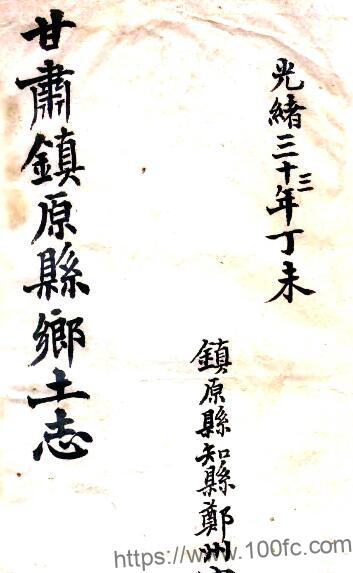 光緒三十三年丁未
鎮原縣知縣鄭州
甘肅鎮原縣鄉土志
https://www.100fc.com